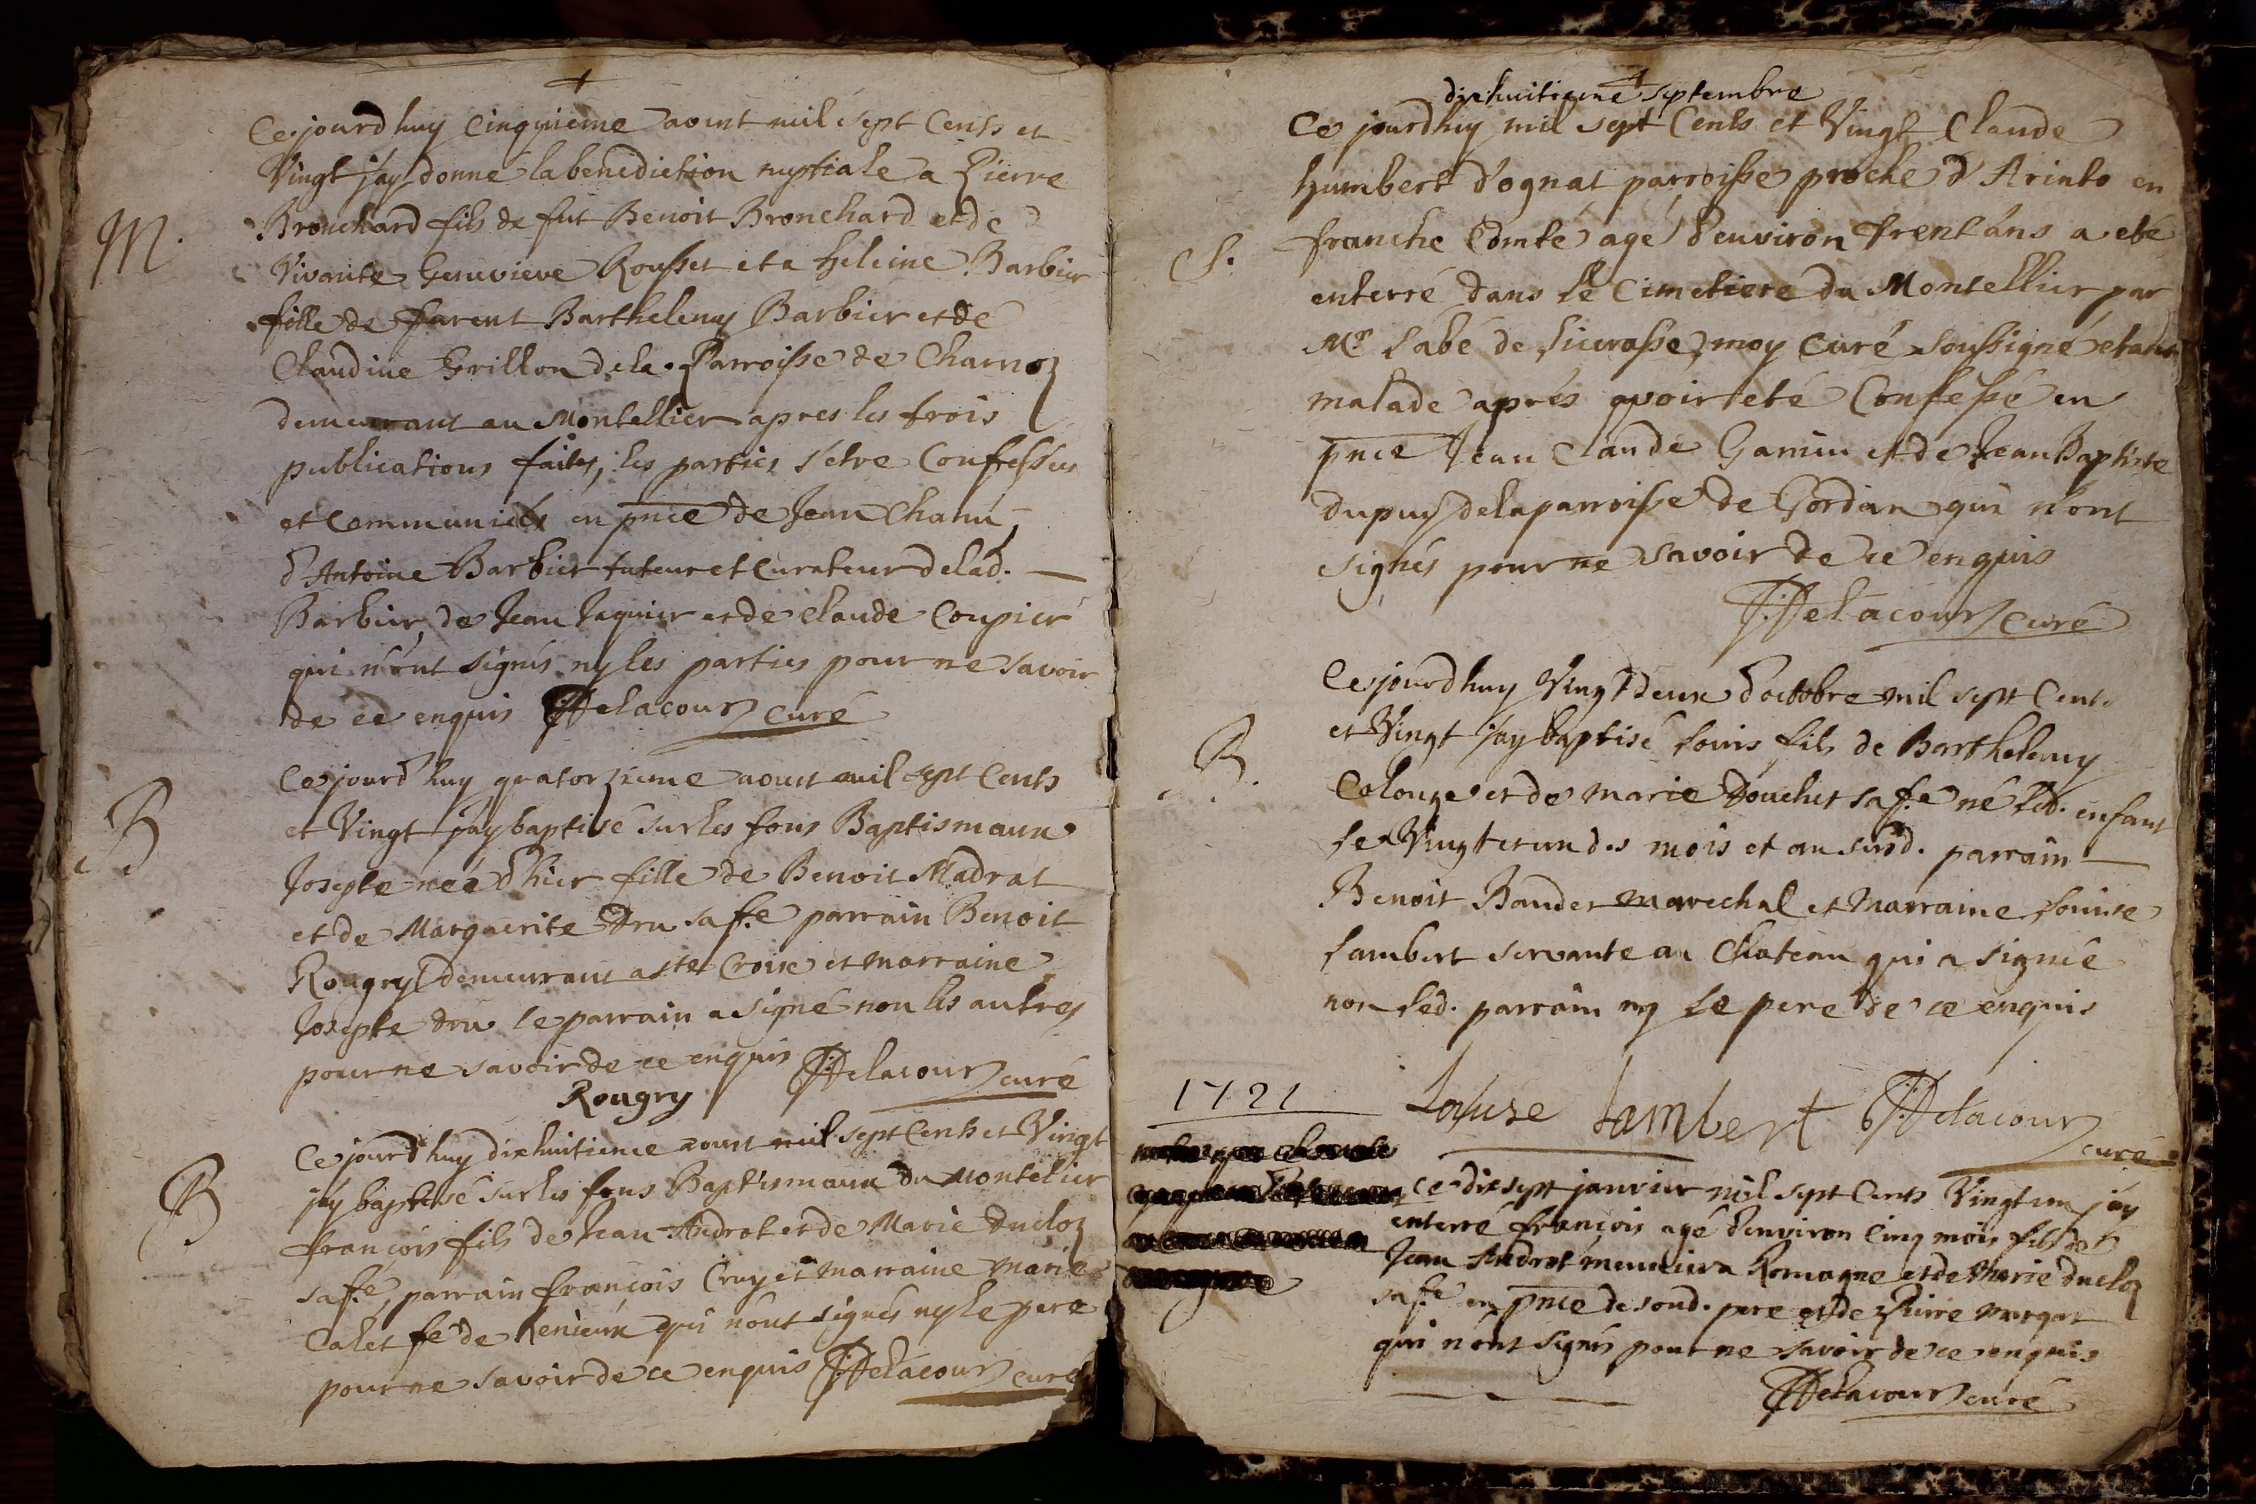 Ce jourdhuy cinquieme aoust mil sept cents et
vingt j'ay donné la benediction nuptiale a Pierre
M.
Bronchard fils de fut Benoit Bronchard et de
vivante Genevieve Rousset et a heleine Barbier
fille de furent Barthelemy Barbier et de
Claudine Grillon de la Parroisse de Charnoz
demeurant au Montellier apres les trois
publications faites, les parties s'etre confessees
et communiees en pnce de Jean Chanu,
d'Antoine Barbier tuteur et curateur de lad.
Barbier, de Jean Jaquier et de Claude Coupier
qui n'ont signés ny les parties pour ne savoir
de ce enquis Delacour curé
Ce jourd'huy quatorzieme aoust mil sept cents
B
et vingt j'ay baptisé sur les fons Baptismaux
Josepte neé d'hier fille de Benoit Madrat
et de Marguerite Dru sa fe. parrain Benoit
Rougry demeurant a ste Croix et marraine
Josepte dru le parrain a signé non les autres
pour ne savoir de ce enquis Delacour curé
Rougry
Ce jourd'huy dixhuitieme aoust mil sept cents et vingt
B
j'ay baptisé sur les fons Baptismaux du Montelier
françois fils de Jean Androt et de Marie Ducloz
sa fe, parrain françois Cruy et marraine Marie
Calet fe de qui n'ont signés ny le pere
pour ne savoir de ce enquis Delacour curé
dixhuitieme septembre
Ce jourdhuy mil sept cents et vingt Claude
humbert d'ognat parroisse proche d'Arinto en
S.
franche Comté agé d'environ trent'ans a eté
enterré dans le Cimetiere du Montellier par
Mr l'abé de moy curé soussigné etant
malade aprés avoir eté confessé en
pnce Jean Claude Ganin et de Jean Baptiste
dupuy de la parroisse de Gordan qui n'ont
signés pour ne savoir de ce enquis
Delacour curé
Ce jourdhuy vingt deux d'octobre mil sept cent.
et vingt j'ay baptisé Louis fils de Barthelemy
B.
Colonge et de marie Douchet sa fe. né led. enfant
le vingt et un des mois et an susd. parrain
Benoit Bauder marechal et marraine Louise
Lambert servante au Chateau qui a signée
non led. parrain ny le pere de ce enquis
Louise Lambert Delacour
curé
1721
ce dix sept janvier mil sept cents vingt un j'ay
enterré françois agé d'environ cinq mois fils de
Jean Androt meunier a Romagne et de Marie ducloz
sa fe en pnce de soud. pere et de Pierre margat
qui n'ont signés pour ne savoir de ce enquis
Delacour curé